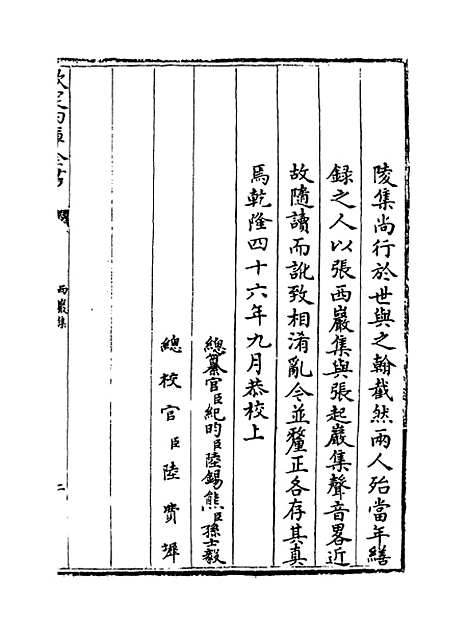 陵集尚行於世與之翰截然兩人殆當年繕
録之人以張西巖集與張起巖集聲音畧近
故隨讀而訛致相淆亂今並釐正各存其真
焉乾隆四十六年九月恭校上
總纂官臣紀昀臣陸錫熊臣孫士毅
總校官臣陸費墀
欽定四庫全書
西巖集
二